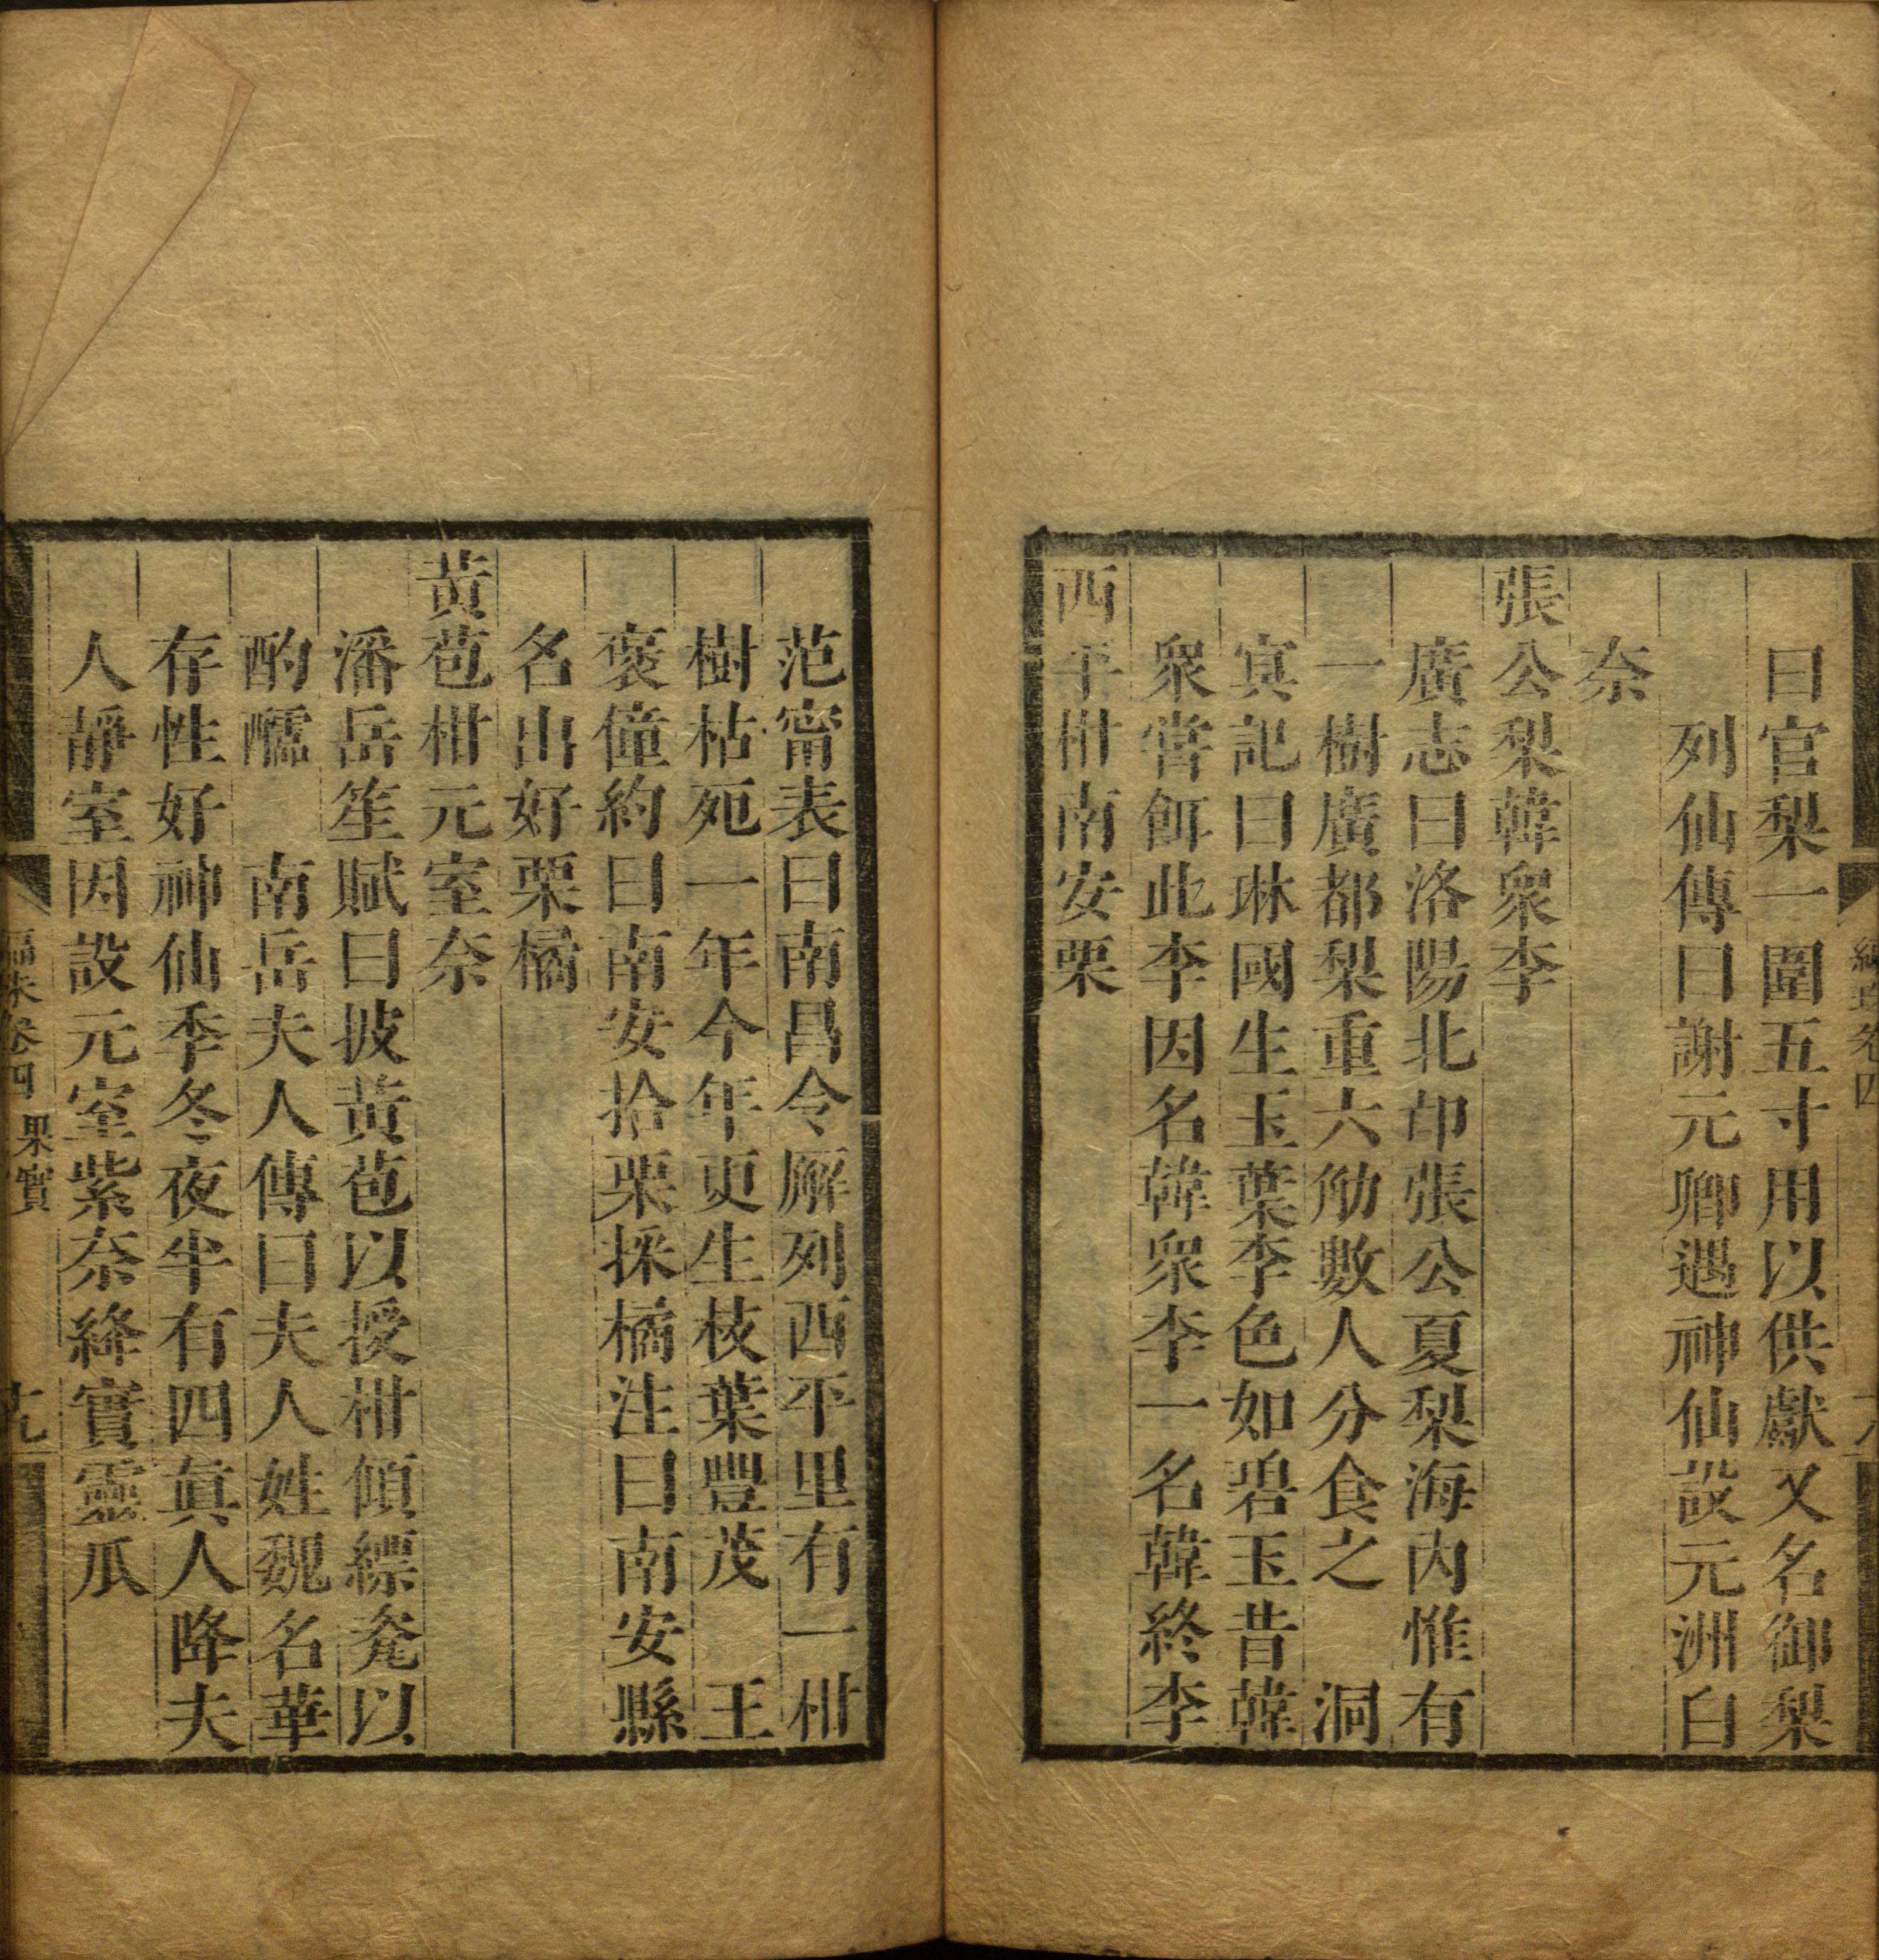 曰官梨一圍五寸用以供獻又名御梨
列仙傳曰謝元卿遇神仙設元洲白
奈
張公梨韓衆李
廣志曰洛陽北卬張公夏梨海內惟有
一樹廣都梨重六觔數人分食之　洞
㝠記曰琳國生玉葉李色如碧玉昔韓
衆嘗餌此李因名韓衆李一名韓終李
西平柑南安栗
范甯表曰南昌令解列西平里有一柑
樹枯死一年今年更生枝葉豐茂　王
褒僮約曰南安拾栗採橘注曰南安縣
名出好栗橘
黃苞柑元室奈
潘岳笙賦曰披黃苞以授柑傾縹瓷以
酌醽　南岳夫人傳曰夫人姓魏名華
存性好神仙季冬夜半有四眞人降夫
人靜室因設元室紫奈絳實靈瓜
編珠卷四 果實 十九